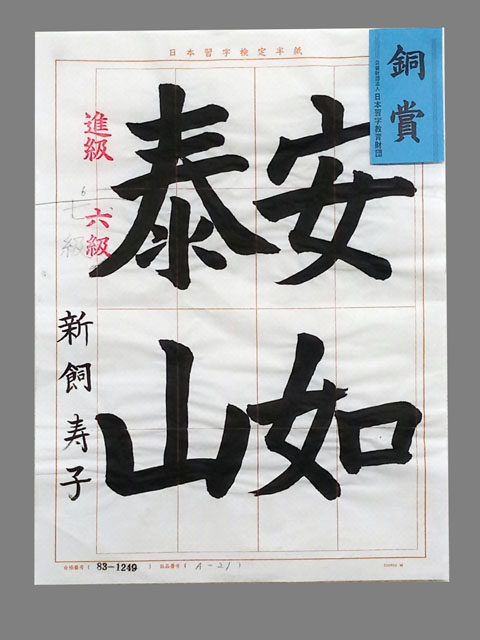 日本習字検定半紙
銅賞
公益財団法人日本習字教育財団
安如
泰山
進級 六級
七級
新飼寿子
83-1249
A-21